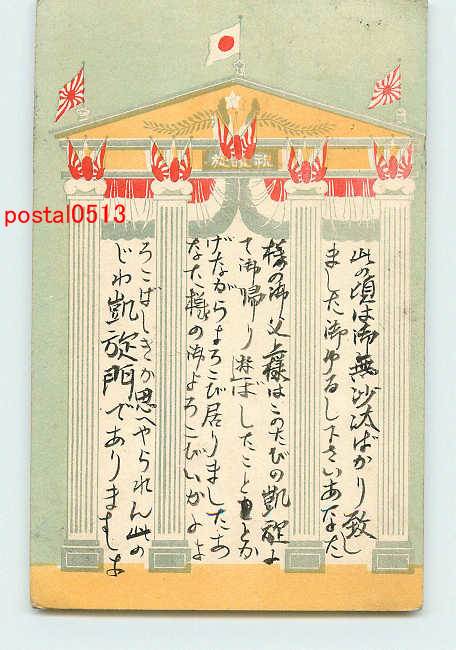 祝凱旋
postal0513
此の頃は御無沙汰ばかり致し
ました御ゆるし下さいあなた
様の御父上様はこのたびの凱旋よ
て御帰り遊ばしたこととか
げながらよろこび居りましたあ
なた様の御よろこびいかよ
ろこばしきか思へやられん此の
じわ凱旋門であります